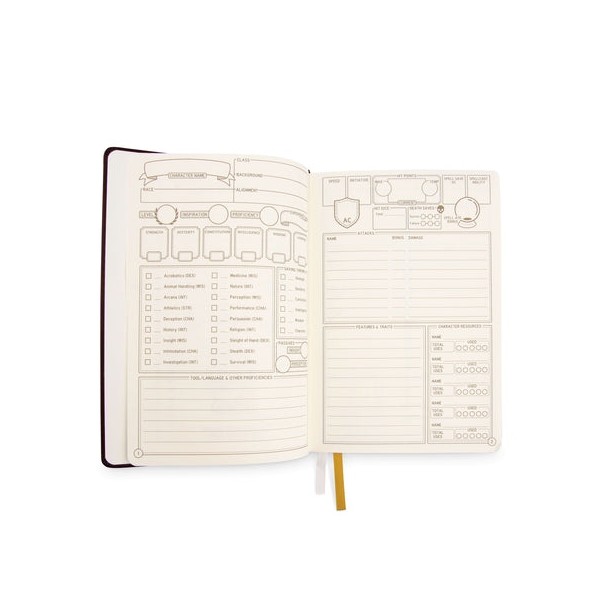 CLASS
CHARACTER NAME
BACKGROUND
RACE
ALIGNMENT
LEVEL
INSPIRATION
PROFICIENCY
STRENGTH
DEXTERITY
CONSTITUTION
INTELLIGENCE
WISDOM
Acrobatics (DEX)
Animal Handling (WIS)
Arcana (INT)
Athletics (STR)
Deception (CHA)
History (INT)
Insight (WIS)
Intimidation (CHA)
Investigation (INT)
Medicine (WIS)
Nature (INT)
Perception (WIS)
Performance (CHA)
Persuasion (CHA)
Religion (INT)
Sleight of Hand (DEX)
Stealth (DEX)
Survival (WIS)
PASSIVES
TOOL/LANGUAGE & OTHER PROFICIENCIES
1
SPEED
INITIATIVE
HIT POINTS
TEMP
CURRENT
SPELL SAVE DC
SPELLCASTING ABILITY
AC
HIT DICE
Total
DEATH SAVES
SPELL ATK BONUS
ATTACKS
NAME
BONUS
DAMAGE
FEATURES & TRAITS
CHARACTER RESOURCES
NAME
TOTAL USES
USED
NAME
TOTAL USES
USED
NAME
TOTAL USES
USED
NAME
TOTAL USES
USED
NAME
TOTAL USES
USED